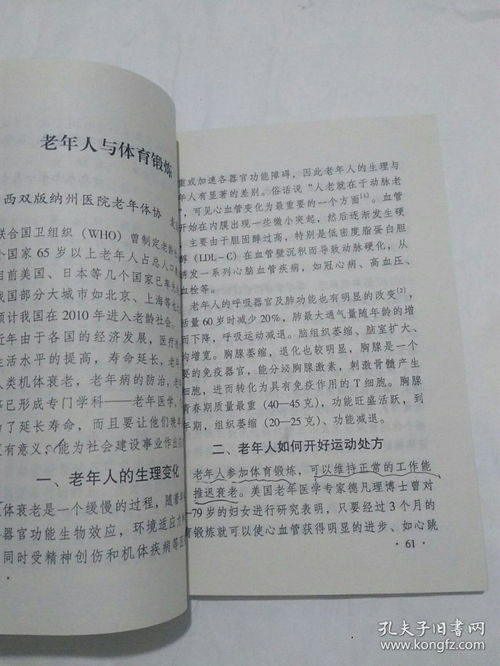 老年人与体育锻炼
西双版纳州医院老年体协
联合国卫组织（WHO）曾制定老龄化
个国家65岁以上老年人占总人口
目前美国、日本等几个国家已
我国部分大城市如北京、上海等
预计我国在2010年进入老龄社会。
近年由于各国的经济发展，医疗
生活水平的提高，寿命延长，老年
人类机体衰老，老年病的防治，
已形成专门学科——老年医学
了延长寿命，而且要让他们
有意义，能为社会建设事业作出
一、老年人的生理变化
体衰老是一个缓慢的过程，随着
器官功能生物效应，环境适应力
同时受精神创伤和机体疾病等
重或加速各器官功能障碍，因此老年人的生理与
年人有显著的差别。俗话说“人老就在于动脉老
，可见心血管变化为最重要的一个方面[1]。血管
开始在内膜出现一些微小突起，然后逐渐发生硬
，主要由于胆固醇过高，特别是低密度脂蛋白胆
醇（LDL－C）在血管壁沉积而导致动脉硬化，从
而诱发一系列心脑血管疾病，如冠心病、高血压、
血栓等。
老年人的呼吸器官及肺功能也有明显的改变[2]，
活量60岁时减少20%，肺最大通气量随年龄的增
而下降，呼吸运动减退。脑组织萎缩、脑室扩大、
沟增宽。胸腺萎缩，退化也较明显，胸腺是一个
要的免疫器官，能分泌胸腺激素，刺激骨髓产生
细胞，进而转化为具有免疫作用的T细胞。胸腺
青春期质量最重（40—45克），功能旺盛活跃，到
年期，组织萎缩（20—25克），功能减退。
二、老年人如何开好运动处方
老年人参加体育锻炼，可以维持正常的工作能
推迟衰老。美国老年医学专家德凡理博士曾对
—79岁的妇女进行研究表明，只要经过3个月的
育锻炼就可以使心血管获得明显的进步、如心跳
· 61 ·
孔夫子旧书网
www.kongfz.com